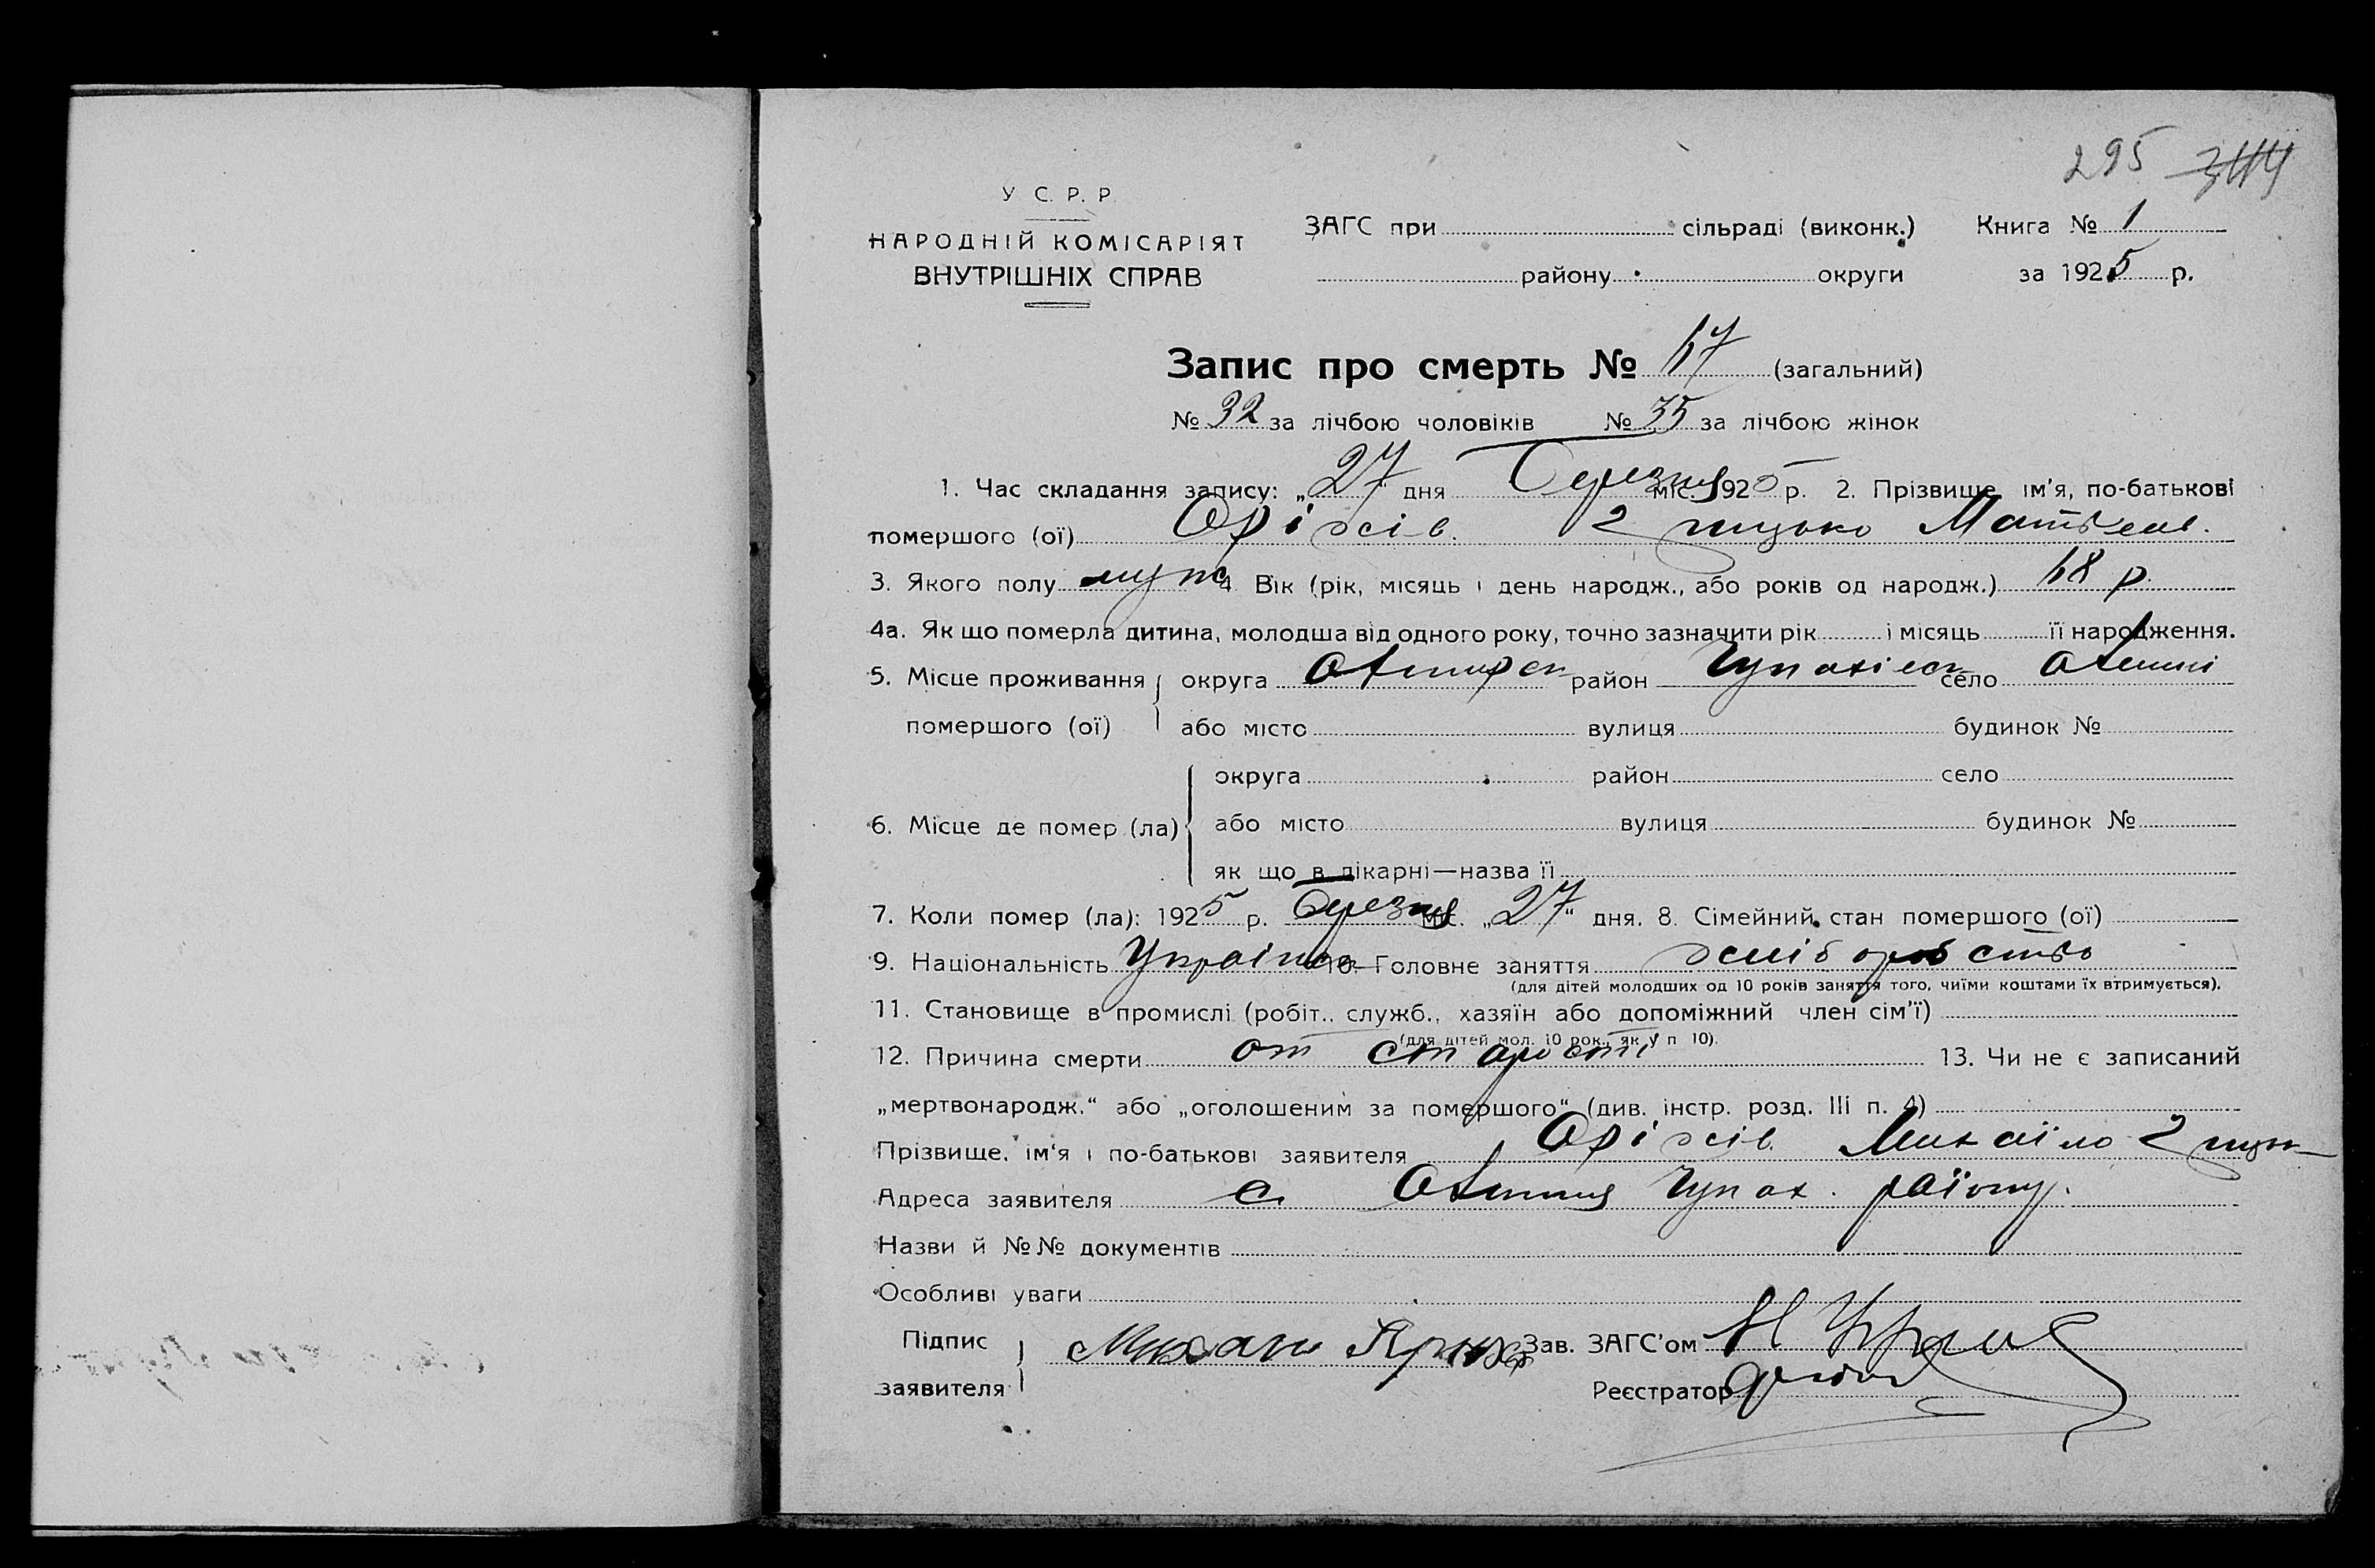 295 344
У С. Р. Р.
НАРОДНІЙ КОМІСАРІЯТ
ВНУТРІШНІХ СПРАВ
ЗАГС при сільраді (виконк.) Книга № 1
району округи за 1925 р.
Запис про смерть № 67 (загальний)
№ 32 за лічбою чоловіків № 35 за лічбою жінок
1. Час складання запису: „27" дня Березня міс. 1925 р. 2. Прізвище, ім'я, по-батькові
помершого (ої) Оріхів Грицько Матвеев.
3. Якого полу муж 4. Вік (рік, місяць і день народж., або років од народж.) 68 р.
4а. Як що померла дитина, молодша від одного року, точно зазначити рік і місяць її народження.
5. Місце проживання округа район Чупахівск село
помершого (ої) або місто вулиця будинок №
округа район село
6. Місце де помер (ла) або місто вулиця будинок №
як що в лікарні—назва її
7. Коли помер (ла): 1925 р. Березня міс. „27" дня. 8. Сімейний стан помершого (ої)
9. Національність 10. Головне заняття хліборобство
(для дітей молодших од 10 років заняття того, чиїми коштами їх втримується).
11. Становище в промислі (робіт., служб., хазяїн або допоміжний член сім'ї)
(для дітей мол. 10 рок., як у п 10).
12. Причина смерти от старости 13. Чи не є записаний
„мертвонародж." або „оголошеним за помершого" (див. інстр. розд. III п. 4)
Прізвище, ім'я і по-батькові заявителя Оріхів Михайло Грицьк
Адреса заявителя с. Чупах. району.
Назви й №№ документів
Особливі уваги
Підпис Зав. ЗАГС'ом
заявителя Реєстратор